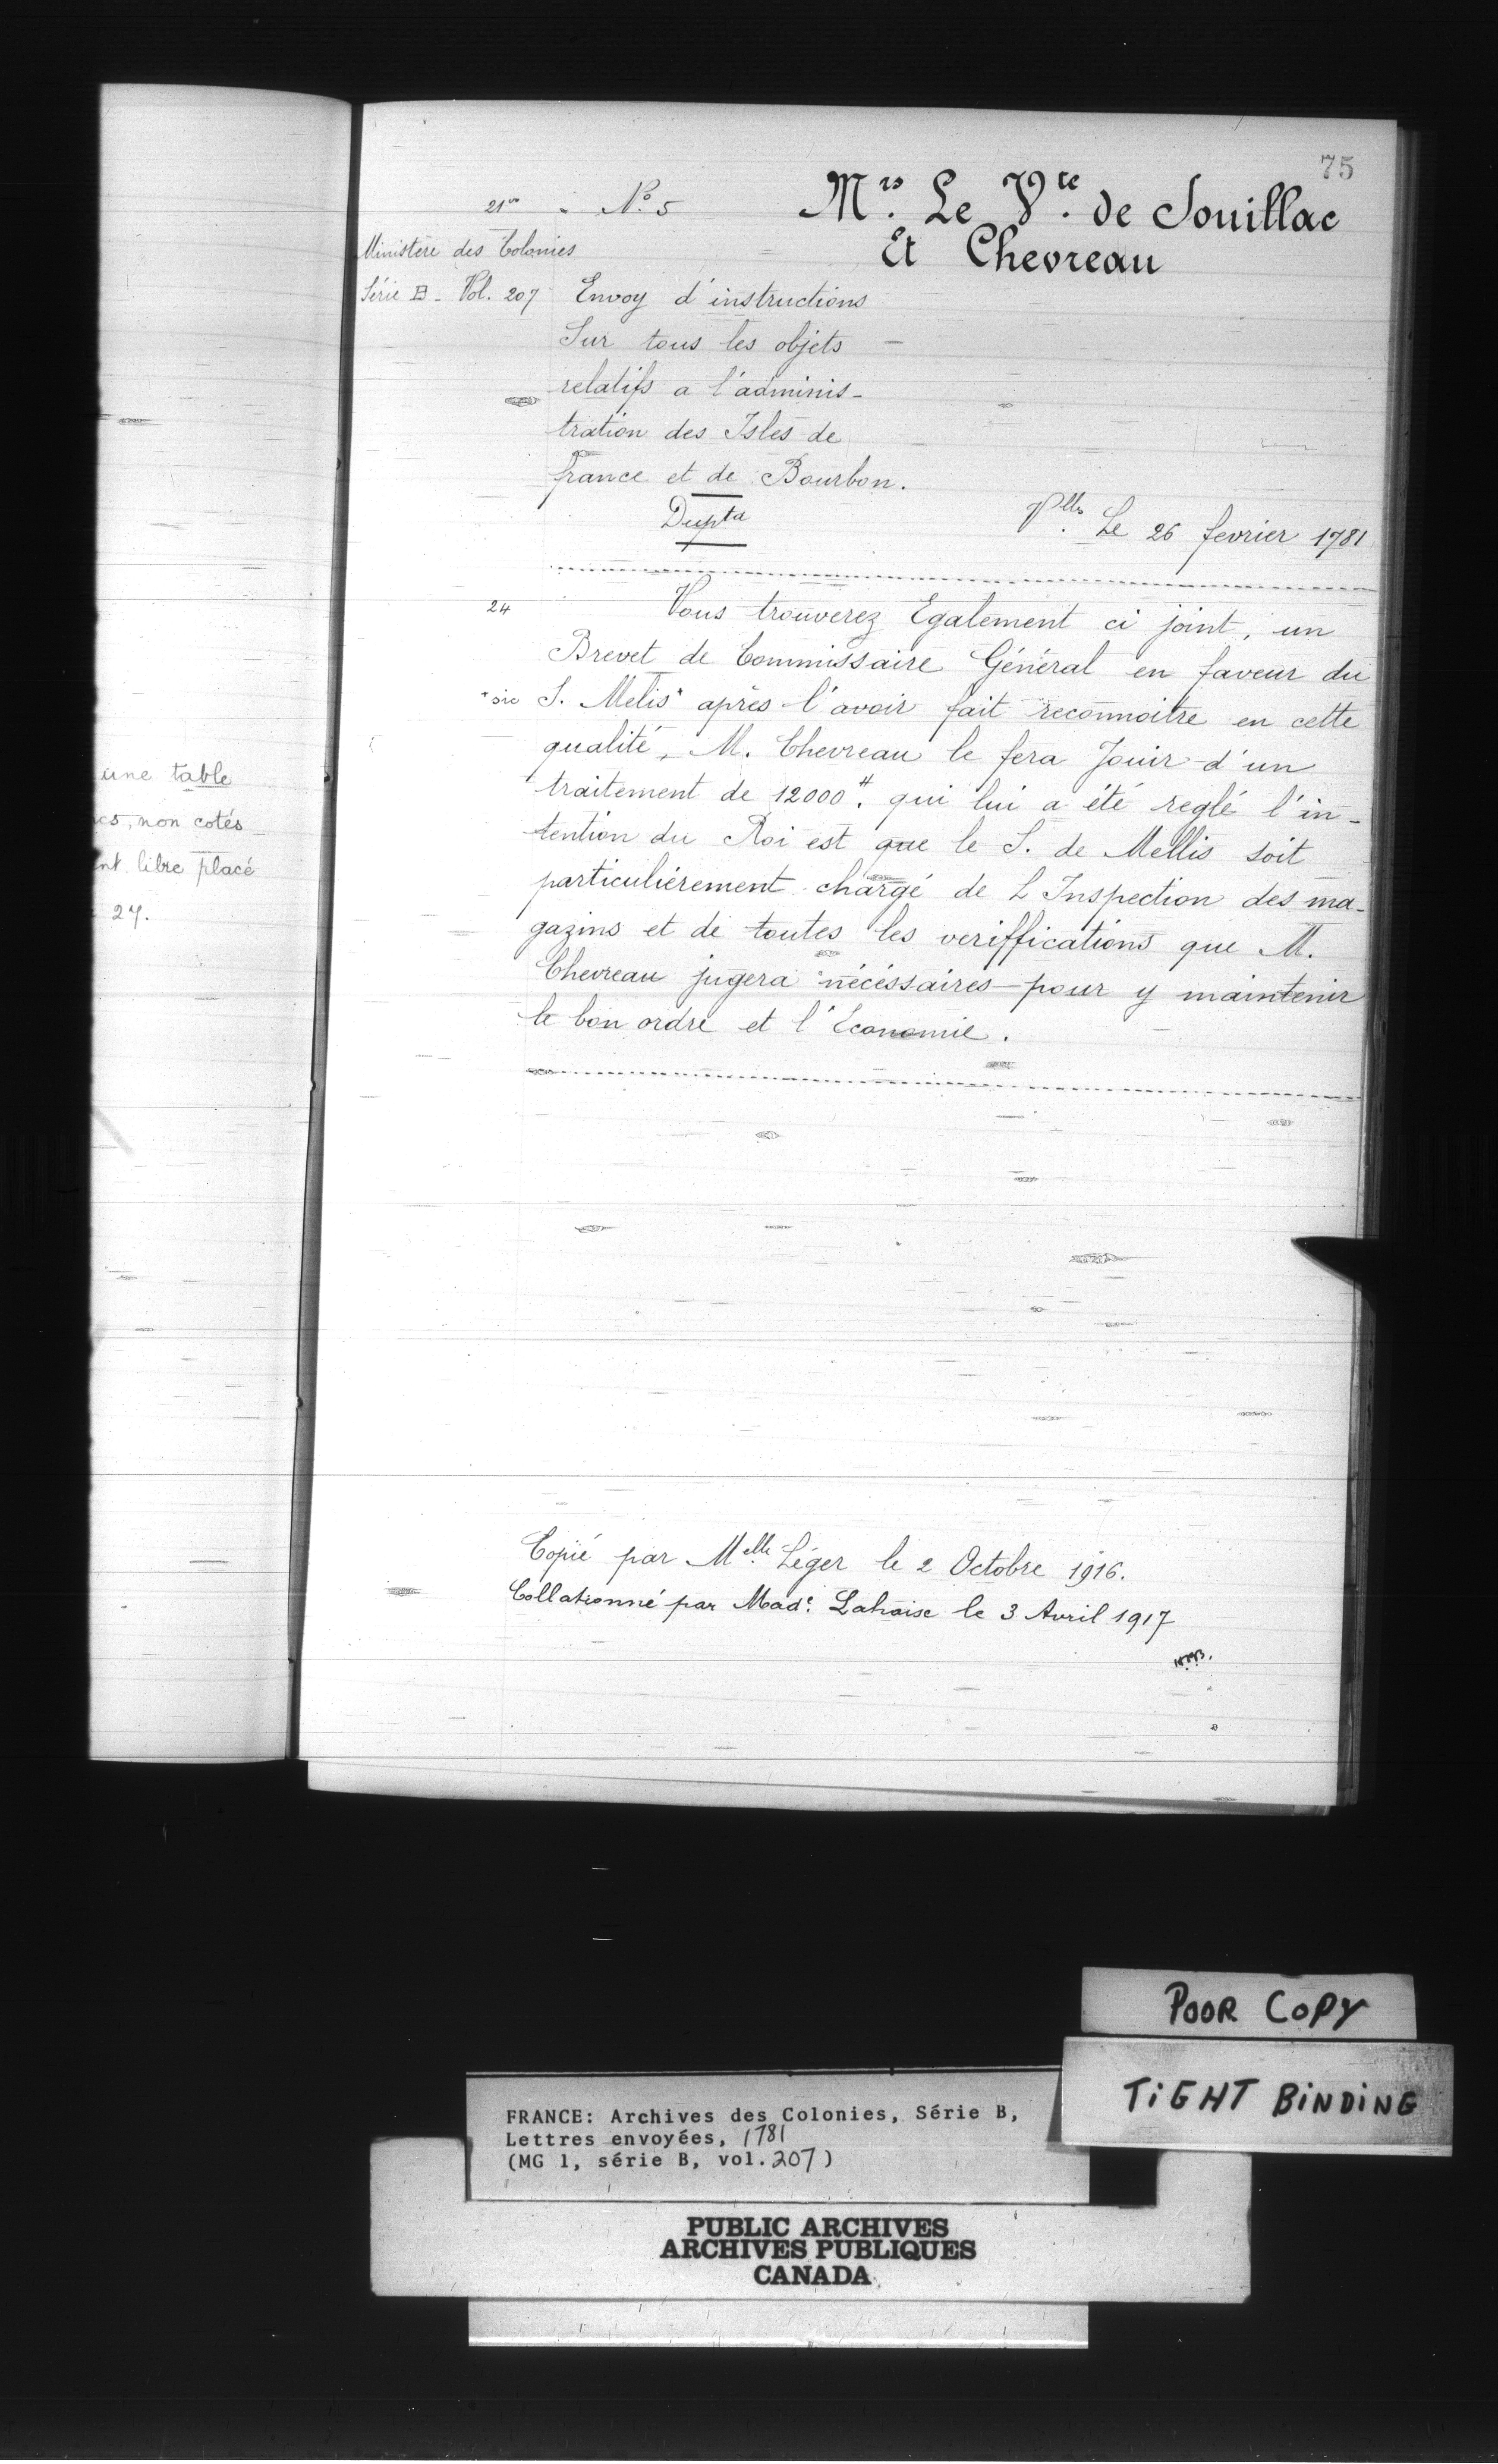 75
21vo - No. 5
Mrs. Le Vte. de Souillac
Et Chevreau
Ministère des Colonies
Série B - Vol. 207
Envoy d'instructions
Sur tous les objets
relatifs a l'adminis-
tration des Isles de
france et de Bourbon.
Dupta
Vlles. Le 26 fevrier 1781
24
Vous trouverez Egalement ci joint, un
Brevet de Commissaire Général en faveur du
*sic
S. Melis* après l'avoir fait reconnoitre en cette
qualité, M. Chevreau le fera Jouir d'un
traitement de 12000#. qui lui a été reglé l'in-
tention du Roi est que le S. de Mellis soit
particuliérement chargé de L Inspection des ma-
gazins et de toutes les veriffications que M.
Chevreau jugera nécéssaires pour y maintenir
le bon ordre et l'Economie.
une table
non cotés
libre placé
27.
Copié par Melle. Léger le 2 Octobre 1916.
Collationné par Made. Lahaise le 3 Avril 1917
POOR COPY
TIGHT BINDING
FRANCE: Archives des Colonies, Série B,
Lettres envoyées, 1781
(MG 1, série B, vol. 207)
PUBLIC ARCHIVES
ARCHIVES PUBLIQUES
CANADA